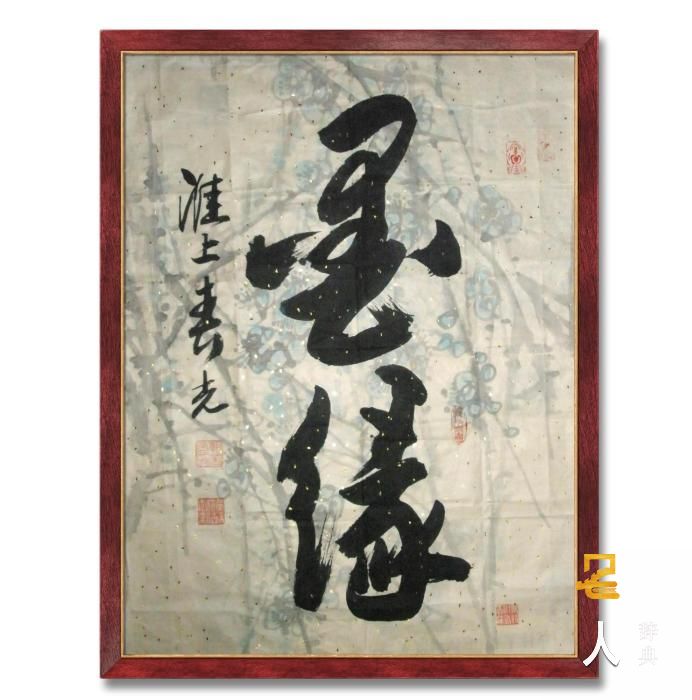 墨缘
淮上春光
名
人
辞典